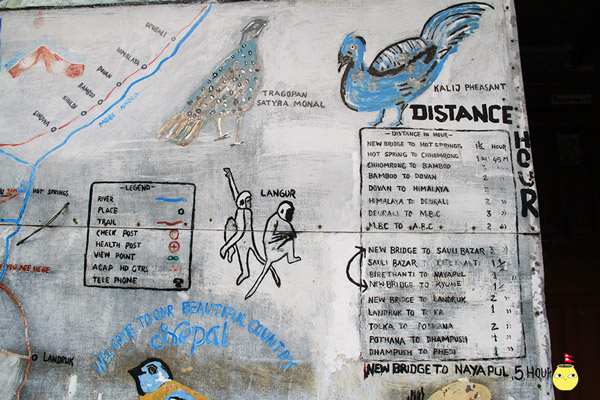 DEURALI
HIMALAYA
DOVAN
BAMBOO
SINUWA
TRAGOPAN
SATYRA MONAL
KALIJ PHEASANT
DISTANCE
HOUR
-DISTANCE IN HOUR-
NEW BRIDGE TO HOT SPRINGS 1½ HOUR
HOT SPRING TO CHHOMRONG
CHHOMRONG TO BAMBOO
BAMBOO TO DOVAN 2
DOVAN TO HIMALAYA
HIMALAYA TO DEURALI 2 "
DEURALI TO M.B.C 3 "
M.BC TO A.B.C 2
NEW BRIDGE TO SAULI BAZAR 3 "
SAULI BAZAR TO
BIRETHANTI TO NAYAPUL
NEW BRIDGE TO KYUMI
NEW BRIDGE TO LANDRUK 2 "
LANDRUK TO
TOLKA TO POTHANA 2 "
POTHANA TO DHAMPUSH
DHAMPUSH TO PHEDI
NEW BRIDGE TO NAYAPUL 5 HOUR
HOT SPRINGS
YOU ARE HERE
LANGUR
-LEGEND-
RIVER
PLACE
TRAIL
CHECK POST
HEALTH POST
VIEW POINT
ACAP HD QTRS
TELE PHONE
WELCOME TO OUR BEAUTIFUL COUNTRY
Nepal
LANDRUK